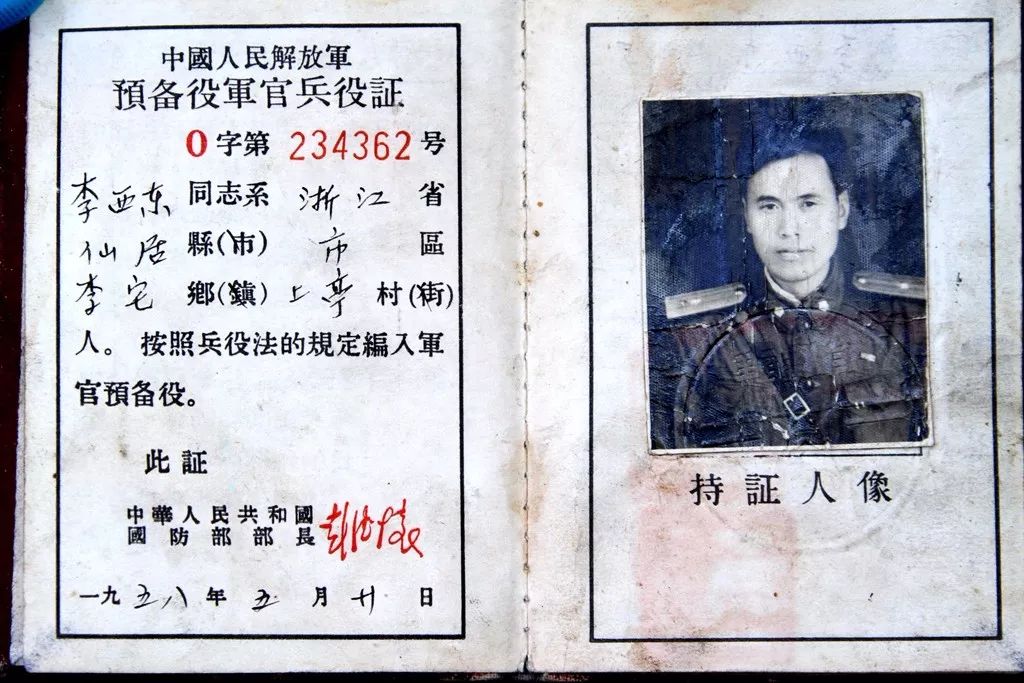 中國人民解放軍
預备役軍官兵役証
0字第 234362 号
李西东 同志系 浙江 省
仙居 縣(市) 市 區
李宅 鄉(鎮) 上亭 村(街)
人。按照兵役法的規定編入軍
官預备役。
此証
中華人民共和國
國防部部長 彭德怀
一九五八年五月廿日
持証人像